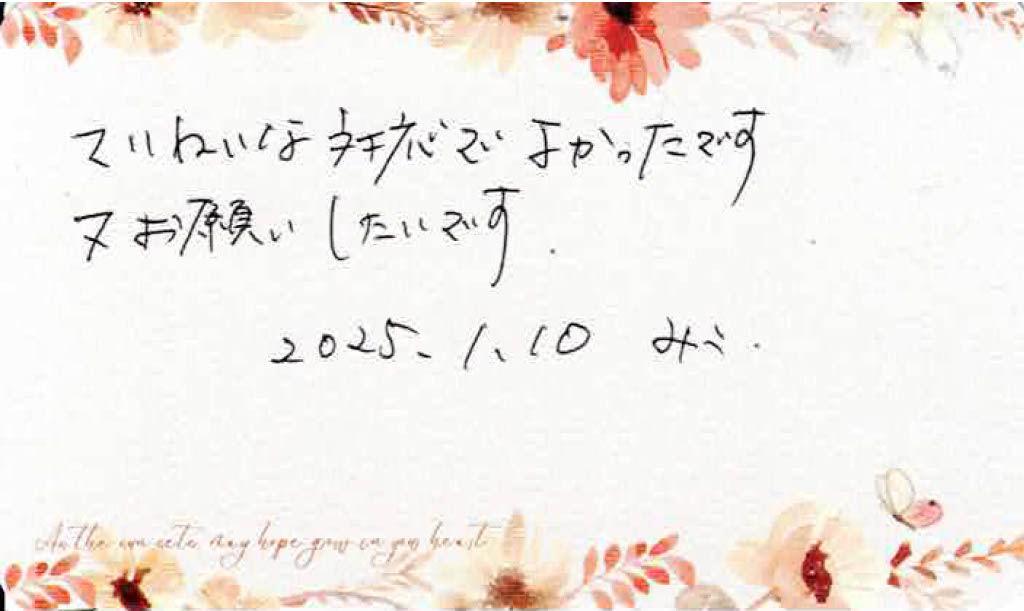 ていねいな対応でよかったです
又お願いしたいです.
2025、1、10
As the sun sets, may hope grow in your heart